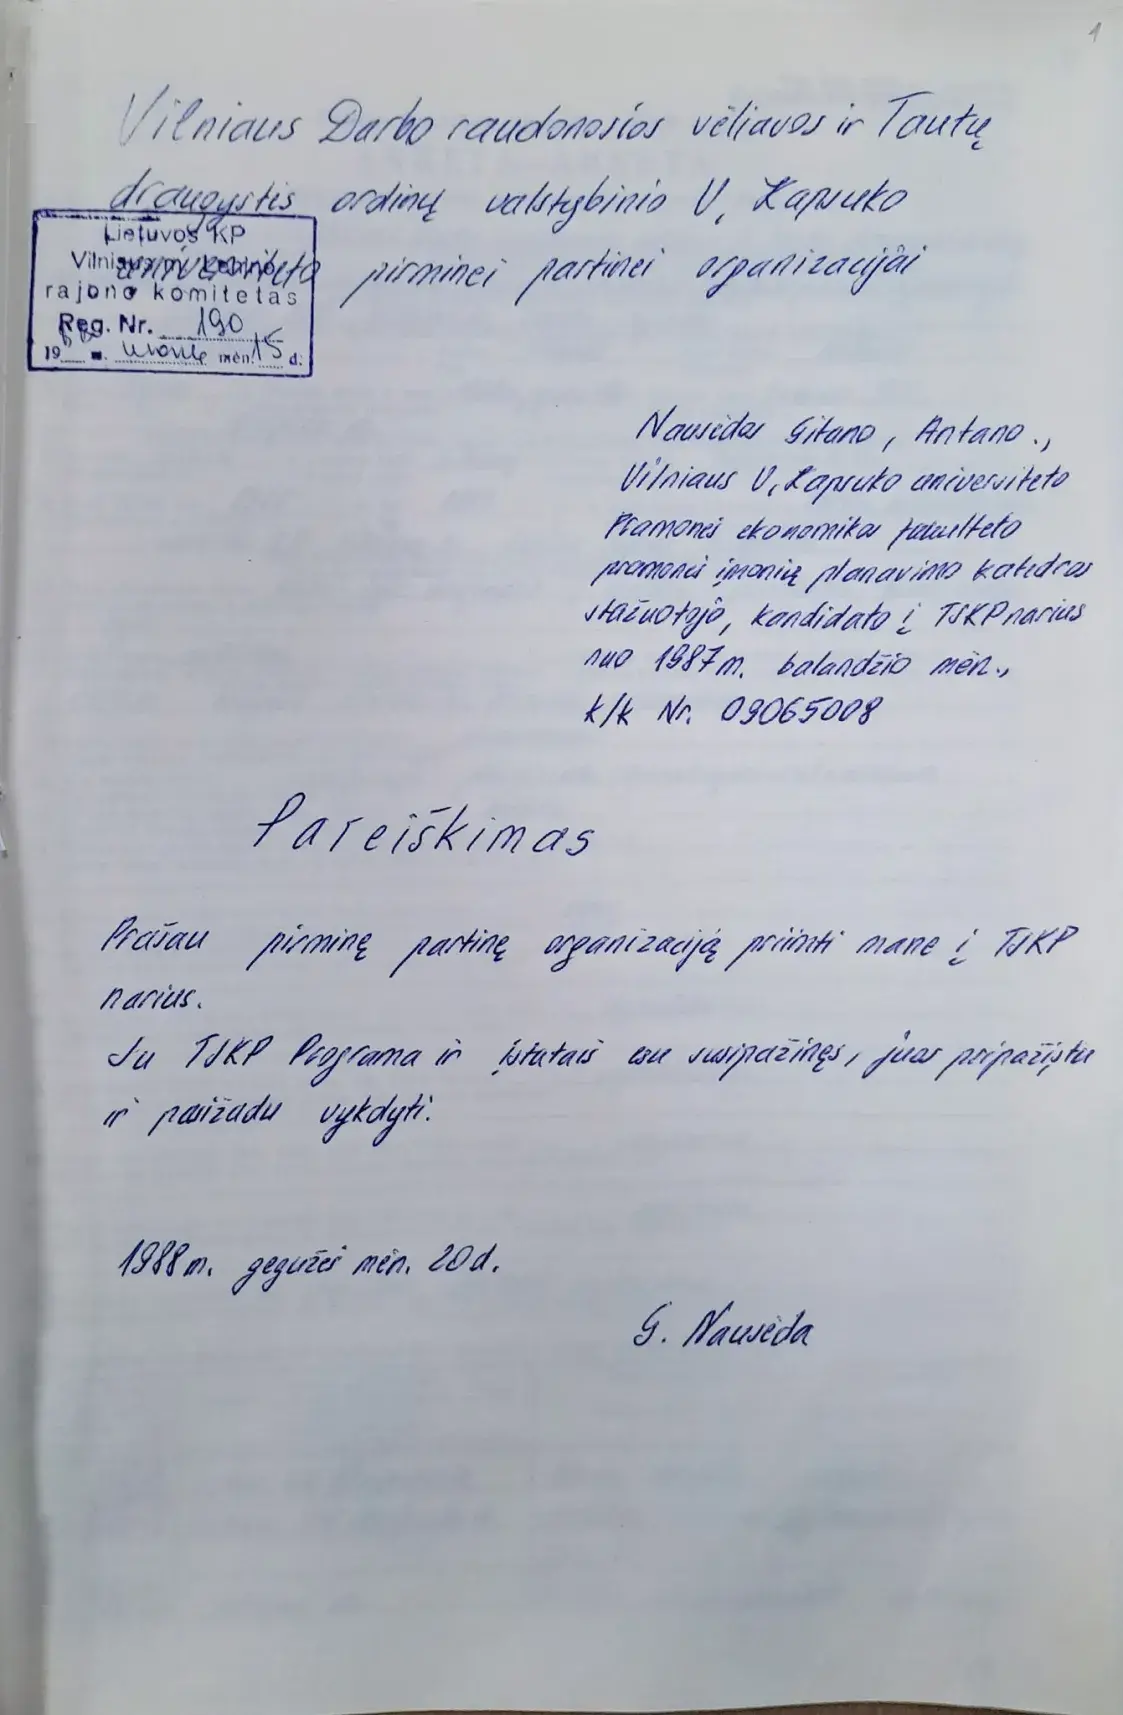 1
Vilniaus Darbo raudonosios vėliavos ir Tautų
draugystės ordinų valstybinio V. Kapsuko
universiteto pirminei partinei organizacijai
Lietuvos KP
Vilniaus m. Lenino
rajono komitetas
Reg. Nr. 190
1988 m. mėn. 15 d.
Nausėdos Gitano, Antano.,
Vilniaus V. Kapsuko universiteto
Pramonės ekonomikos fakulteto
pramonės įmonių planavimo katedros
stažuotojo, kandidato į TSKP narius
nuo 1987 m. balandžio mėn.,
k/k Nr. 09065008
Pareiškimas
Prašau pirminę partinę organizaciją priimti mane į TSKP
narius.
Su TSKP Programa ir įstatais esu susipažinęs, juos pripažįstu
ir pasižadu vykdyti.
1988 m. gegužės mėn. 20 d.
G. Nausėda